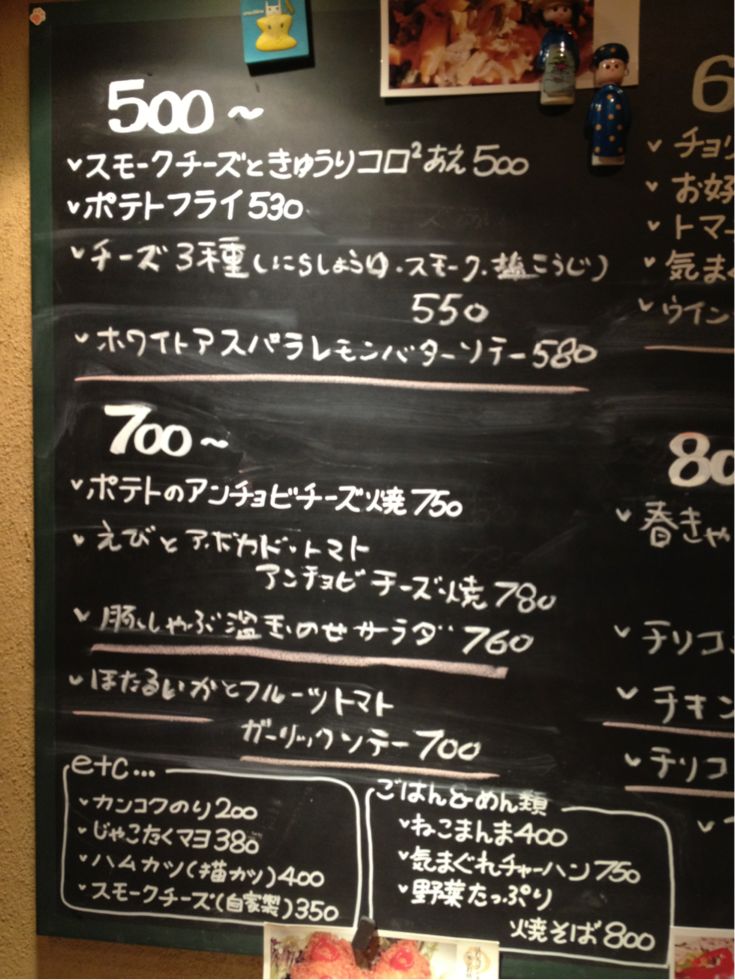 500～
スモークチーズときゅうりコロ²あえ500
ポテトフライ530
チーズ3種(いにらしょうゆ.スモーク.塩こうじ)
550
ホワイトアスパラレモンバターソテー580
700～
ポテトのアンチョビチーズ焼750
えびとアボカド・トマト
アンチョビチーズ焼780
豚しゃぶ温玉のせサラダ760
ほたるいかとフルーツトマト
ガーリックソテー700
etc...
カンコクのり200
じゃこたくマヨ380
ハムカツ(猫カツ)400
スモークチーズ(自家製)350
ごはん&めん類
ねこまんま400
気まぐれチャーハン750
野菜たっぷり
焼そば800
6
チョリ
お好
トマ
気まぐ
ウイン
80
春きゃ
チリコ
チキン
チリコ